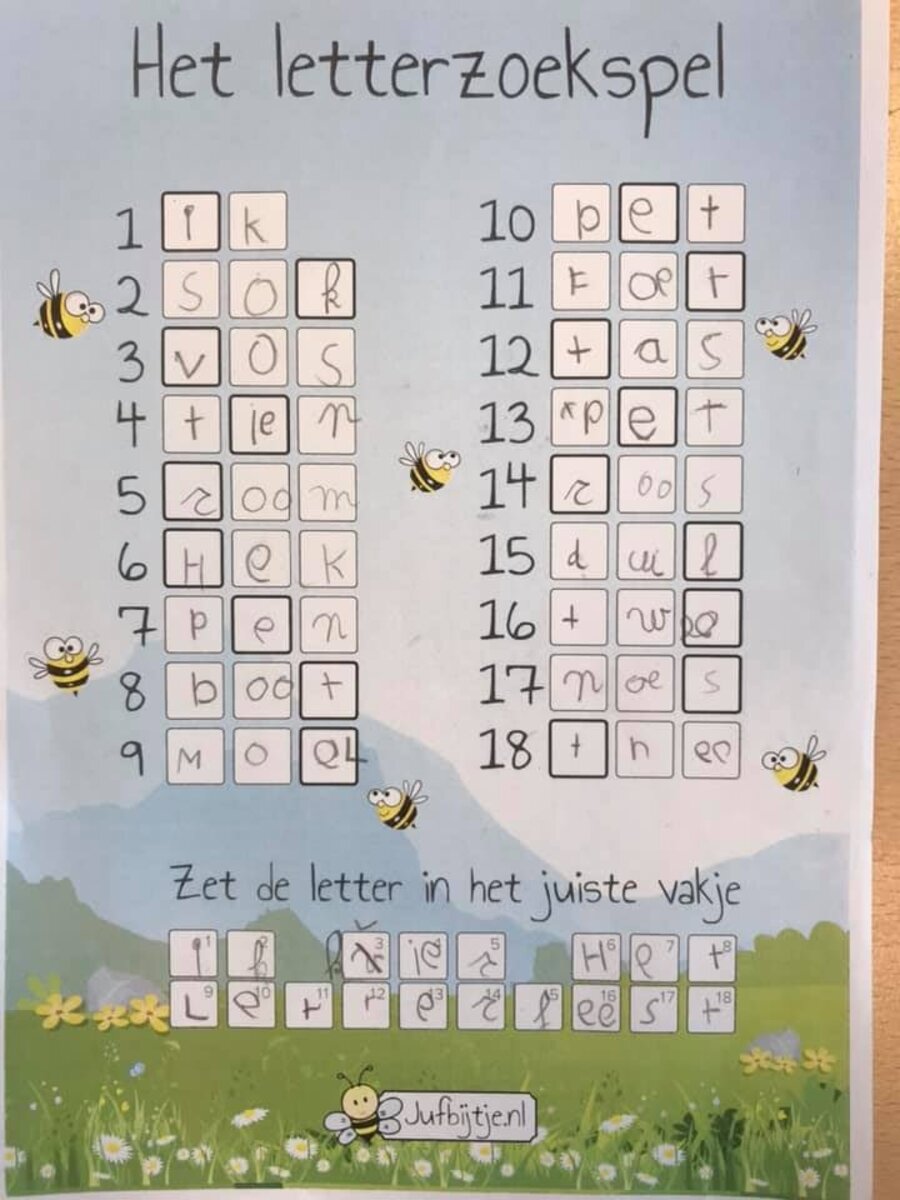 Het letterzoekspel
1 i k
2 s o k
3 v o s
4 t ie n
5 r oo m
6 H e k
7 p e n
8 b oo t
9 M o eL
10 p e t
11 F oe t
12 t a s
13 p e t
14 r oo s
15 d ui l
16 t w ee
17 n oe s
18 t h ee
Zet de letter in het juiste vakje
i k v ie r H e t
L e t t e r f ee s t
Jufbijtje.nl